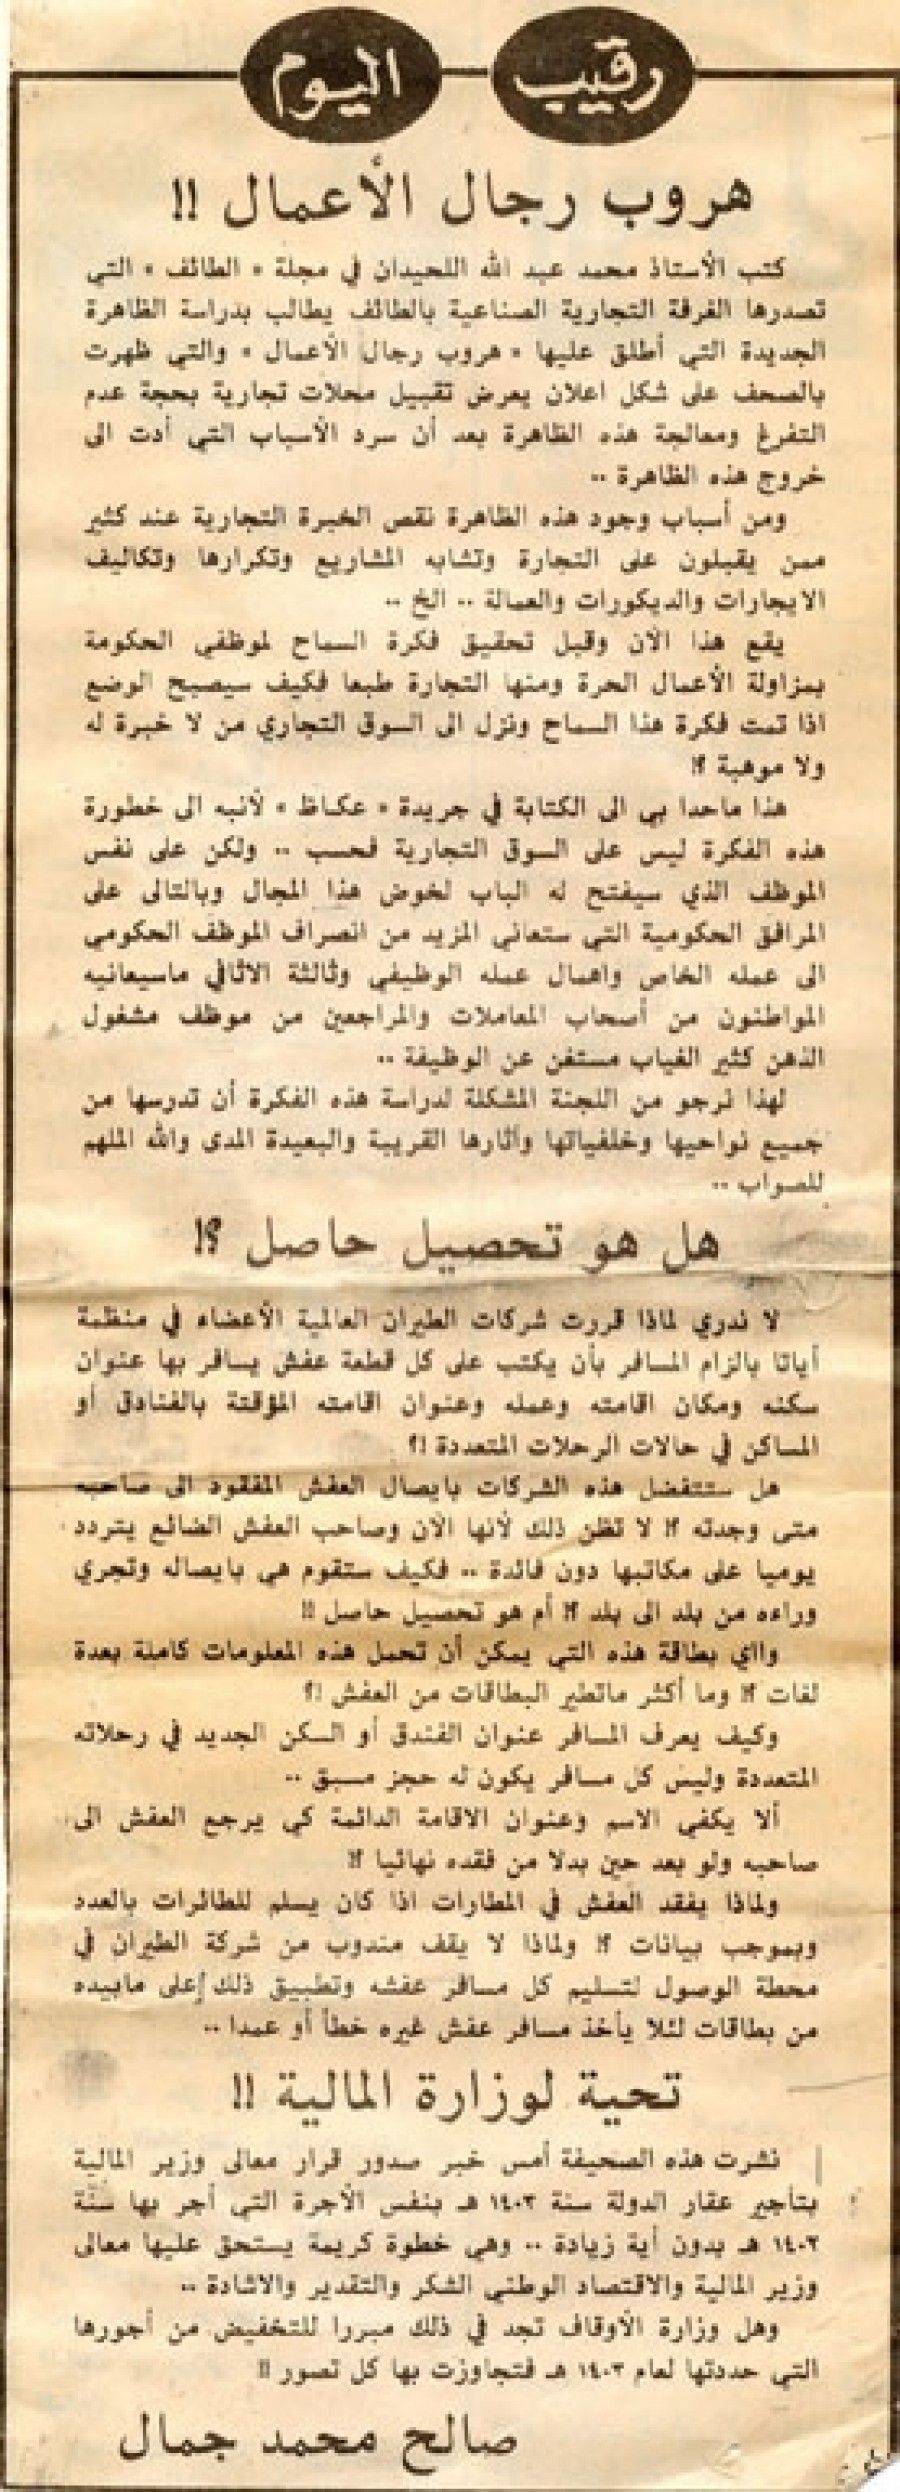 رقيب اليوم
هروب رجال الأعمال !!
كتب الأستاذ محمد عبد الله اللحيدان في مجلة « الطائف » التي
تصدرها الغرفة التجارية الصناعية بالطائف يطالب بدراسة الظاهرة
الجديدة التي أطلق عليها « هروب رجال الأعمال » والتي ظهرت
بالصحف على شكل اعلان يعرض تقبيل محلات تجارية بحجة عدم
التفرغ ومعالجة هذه الظاهرة بعد أن سرد الأسباب التي أدت الى
خروج هذه الظاهرة ..
ومن أسباب وجود هذه الظاهرة نقص الخبرة التجارية عند كثير
ممن يقبلون على التجارة وتشابه المشاريع وتكرارها وتكاليف
الايجارات والديكورات والعمالة .. الخ ..
يقع هذا الآن وقبل تحقيق فكرة السماح لموظفي الحكومة
بمزاولة الأعمال الحرة ومنها التجارة طبعا فكيف سيصبح الوضع
اذا تمت فكرة هذا السماح ونزل الى السوق التجاري من لا خبرة له
ولا موهبة ؟!
هذا ماحدا بي الى الكتابة في جريدة « عكاظ » لأنبه الى خطورة
هذه الفكرة ليس على السوق التجارية فحسب .. ولكن على نفس
الموظف الذي سيفتح له الباب لخوض هذا المجال وبالتالى على
المرافق الحكومية التي ستعاني المزيد من انصراف الموظف الحكومي
الى عمله الخاص واهمال عمله الوظيفي وثالثة الاثافي ماسيعانيه
المواطنون من أصحاب المعاملات والمراجعين من موظف مشغول
الذهن كثير الغياب مستغن عن الوظيفة ..
لهذا نرجو من اللجنة المشكلة لدراسة هذه الفكرة أن تدرسها من
جميع نواحيها وخلفياتها وآثارها القريبة والبعيدة المدى والله الملهم
للصواب ..
هل هو تحصيل حاصل ؟!
لا ندري لماذا قررت شركات الطيران العالمية الأعضاء في منظمة
أياتا بالزام المسافر بأن يكتب على كل قطعة عفش يسافر بها عنوان
سكنه ومكان اقامته وعمله وعنوان اقامته المؤقتة بالفنادق أو
المساكن في حالات الرحلات المتعددة !؟
هل ستتفضل هذه الشركات بايصال العفش المفقود الى صاحبه
متى وجدته ؟! لا تظن ذلك لأنها الآن وصاحب العفش الضائع يتردد
يوميا على مكاتبها دون فائدة .. فكيف ستقوم هي بايصاله وتجري
وراءه من بلد الى بلد ؟! أم هو تحصيل حاصل !!
وااي بطاقة هذه التي يمكن أن تحمل هذه المعلومات كاملة بعدة
لغات ؟! وما أكثر ماتطير البطاقات من العفش !؟
وكيف يعرف المسافر عنوان الفندق أو السكن الجديد في رحلاته
المتعددة وليس كل مسافر يكون له حجز مسبق ..
ألا يكفي الاسم وعنوان الاقامة الدائمة كي يرجع العفش الى
صاحبه ولو بعد حين بدلا من فقده نهائيا ؟!
ولماذا يفقد العفش في المطارات اذا كان يسلم للطائرات بالعدد
وبموجب بيانات ؟! ولماذا لا يقف مندوب من شركة الطيران في
محطة الوصول لتسليم كل مسافر عفشه وتطبيق ذلك على مابيده
من بطاقات لئلا يأخذ مسافر عفش غيره خطأ أو عمدا ..
تحية لوزارة المالية !!
نشرت هذه الصحيفة أمس خبر صدور قرار معالى وزير المالية
بتأجير عقار الدولة سنة ١٤٠٣ هـ بنفس الأجرة التي أجر بها سنة
١٤٠٢ هـ بدون أية زيادة .. وهي خطوة كريمة يستحق عليها معالى
وزير المالية والاقتصاد الوطني الشكر والتقدير والاشادة ..
وهل وزارة الأوقاف تجد في ذلك مبررا للتخفيض من أجورها
التي حددتها لعام ١٤٠٣ هـ فتجاوزت بها كل تصور !!
صالح محمد جمال